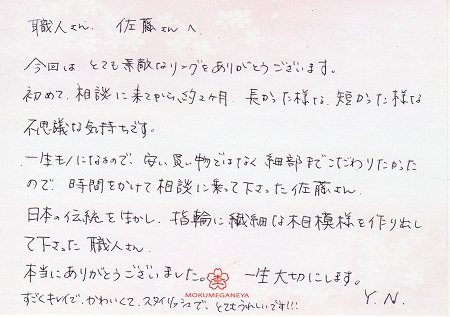 職人さん、佐藤さんへ
今回は とても素敵なリングをありがとうございます。
初めて、相談に来てから、約2ヶ月、長かった様な、短かった様な
不思議な気持ちです。
一生モノになるので、安い買い物ではなく 細部までこだわりたかった
ので、時間をかけて相談に乗って下さった佐藤さん、
日本の伝統を生かし、指輪に繊細な木目模様を作り出し
て下さった 職人さん、
本当にありがとうございました。 一生大切にします。
MOKUMEGANEYA
すごくキレイで、かわいくて、スタイリッシュで、とてもうれしいです!!!
Y.N.